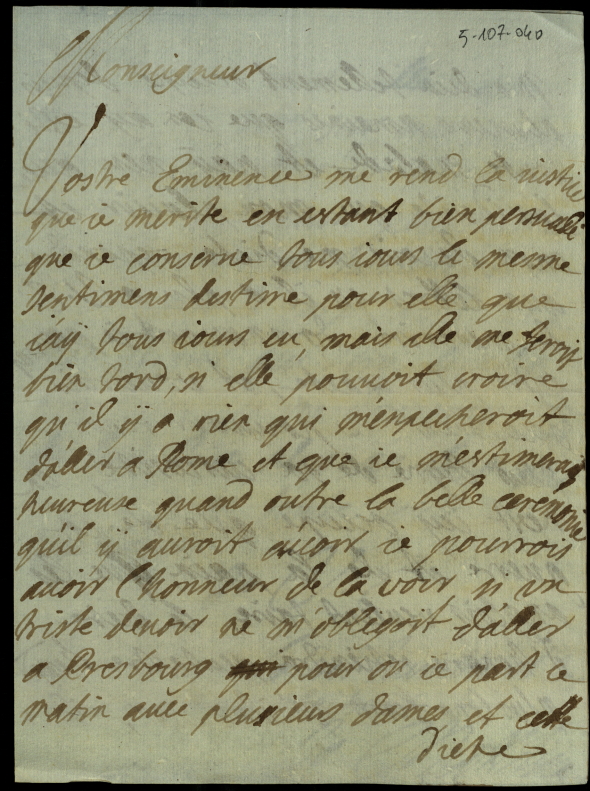 5-107-040
Monseigneur
Vostre Eminence me rend la iustice
que ie merite en estant bien persuadé
que ie conserve tous iours le mesme
sentimens destime pour elle que
iaÿ tous iours eu, mais elle me feroit
bien tord, si elle pouvoit croire
qu'il ÿ a rien qui m'enpecheroit
d'aller a Rome et que ie m'estimerois
heureuse quand outre la belle ceremonie
qu'il ÿ auroit a voir ie pourrois
avoir l'honneur de la voir si un
triste devoir ne m'obligoit d'aller
a Presbourg pour ou ie part ce
matin avec plusieurs dames et cette
diete